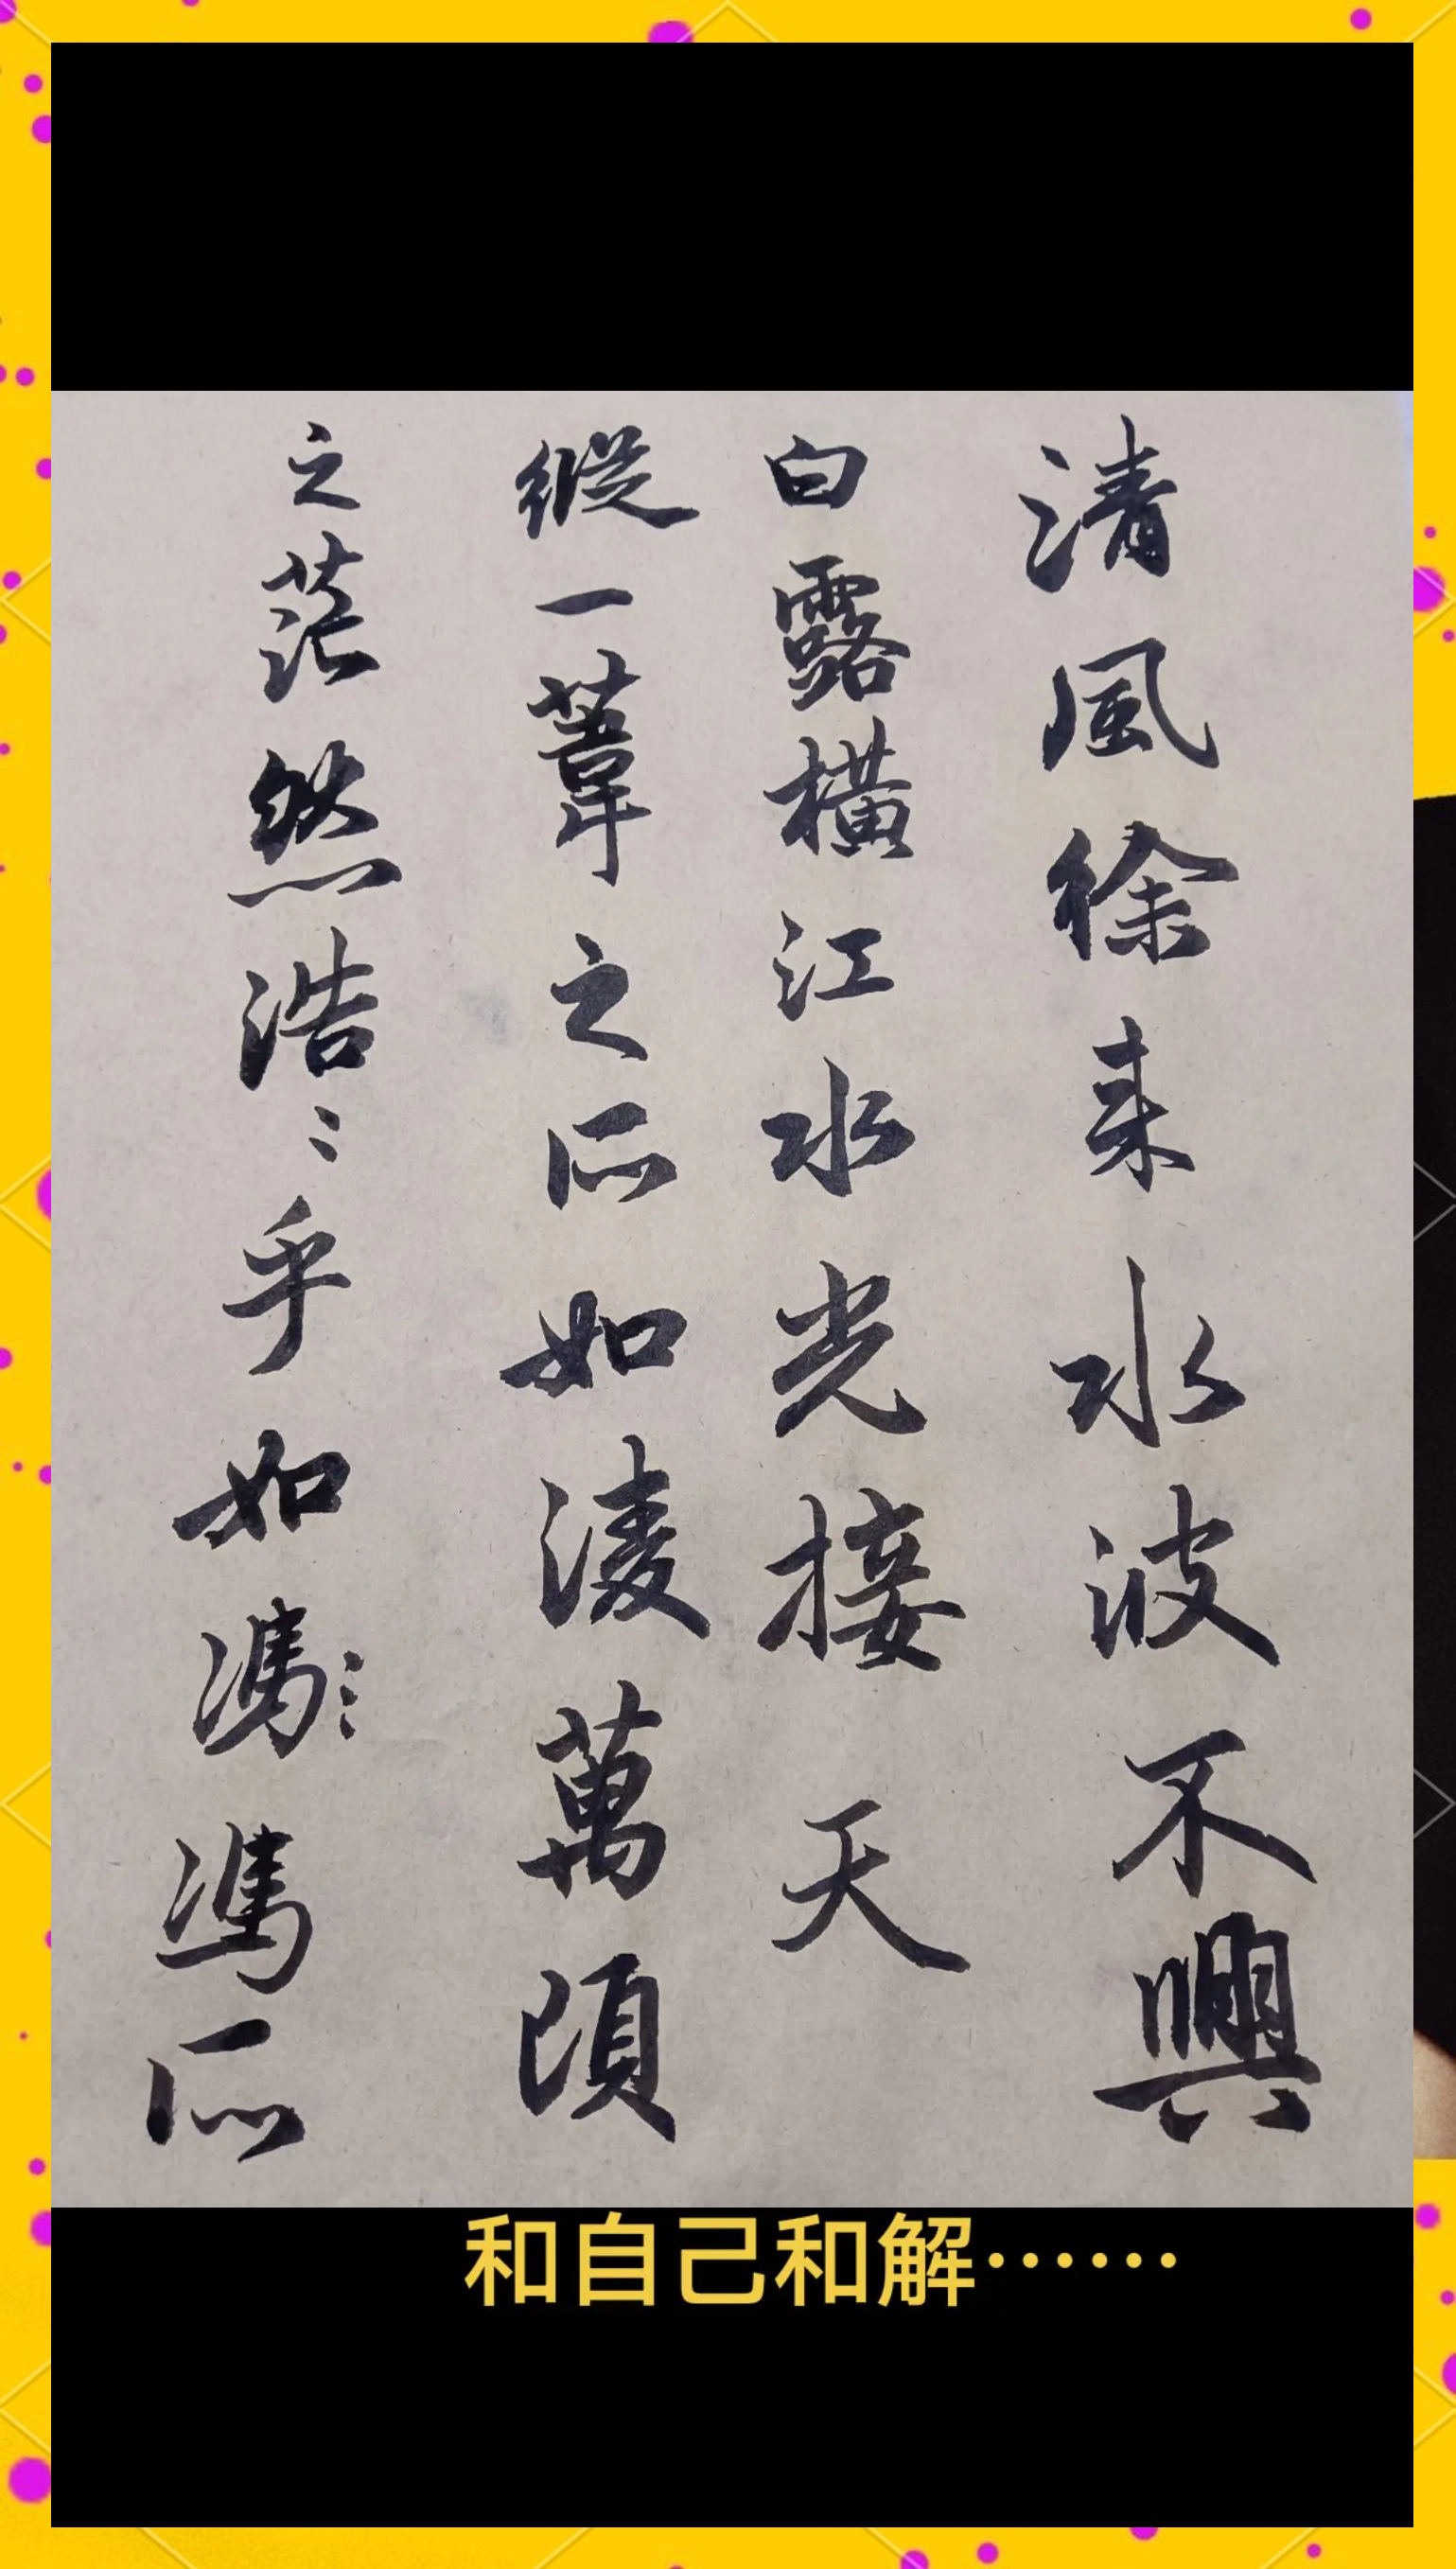 清風徐来水波不興
白露橫江水光接天
縱一葦之所如淩萬頃
之茫然浩〻乎如馮馮所
和自己和解……